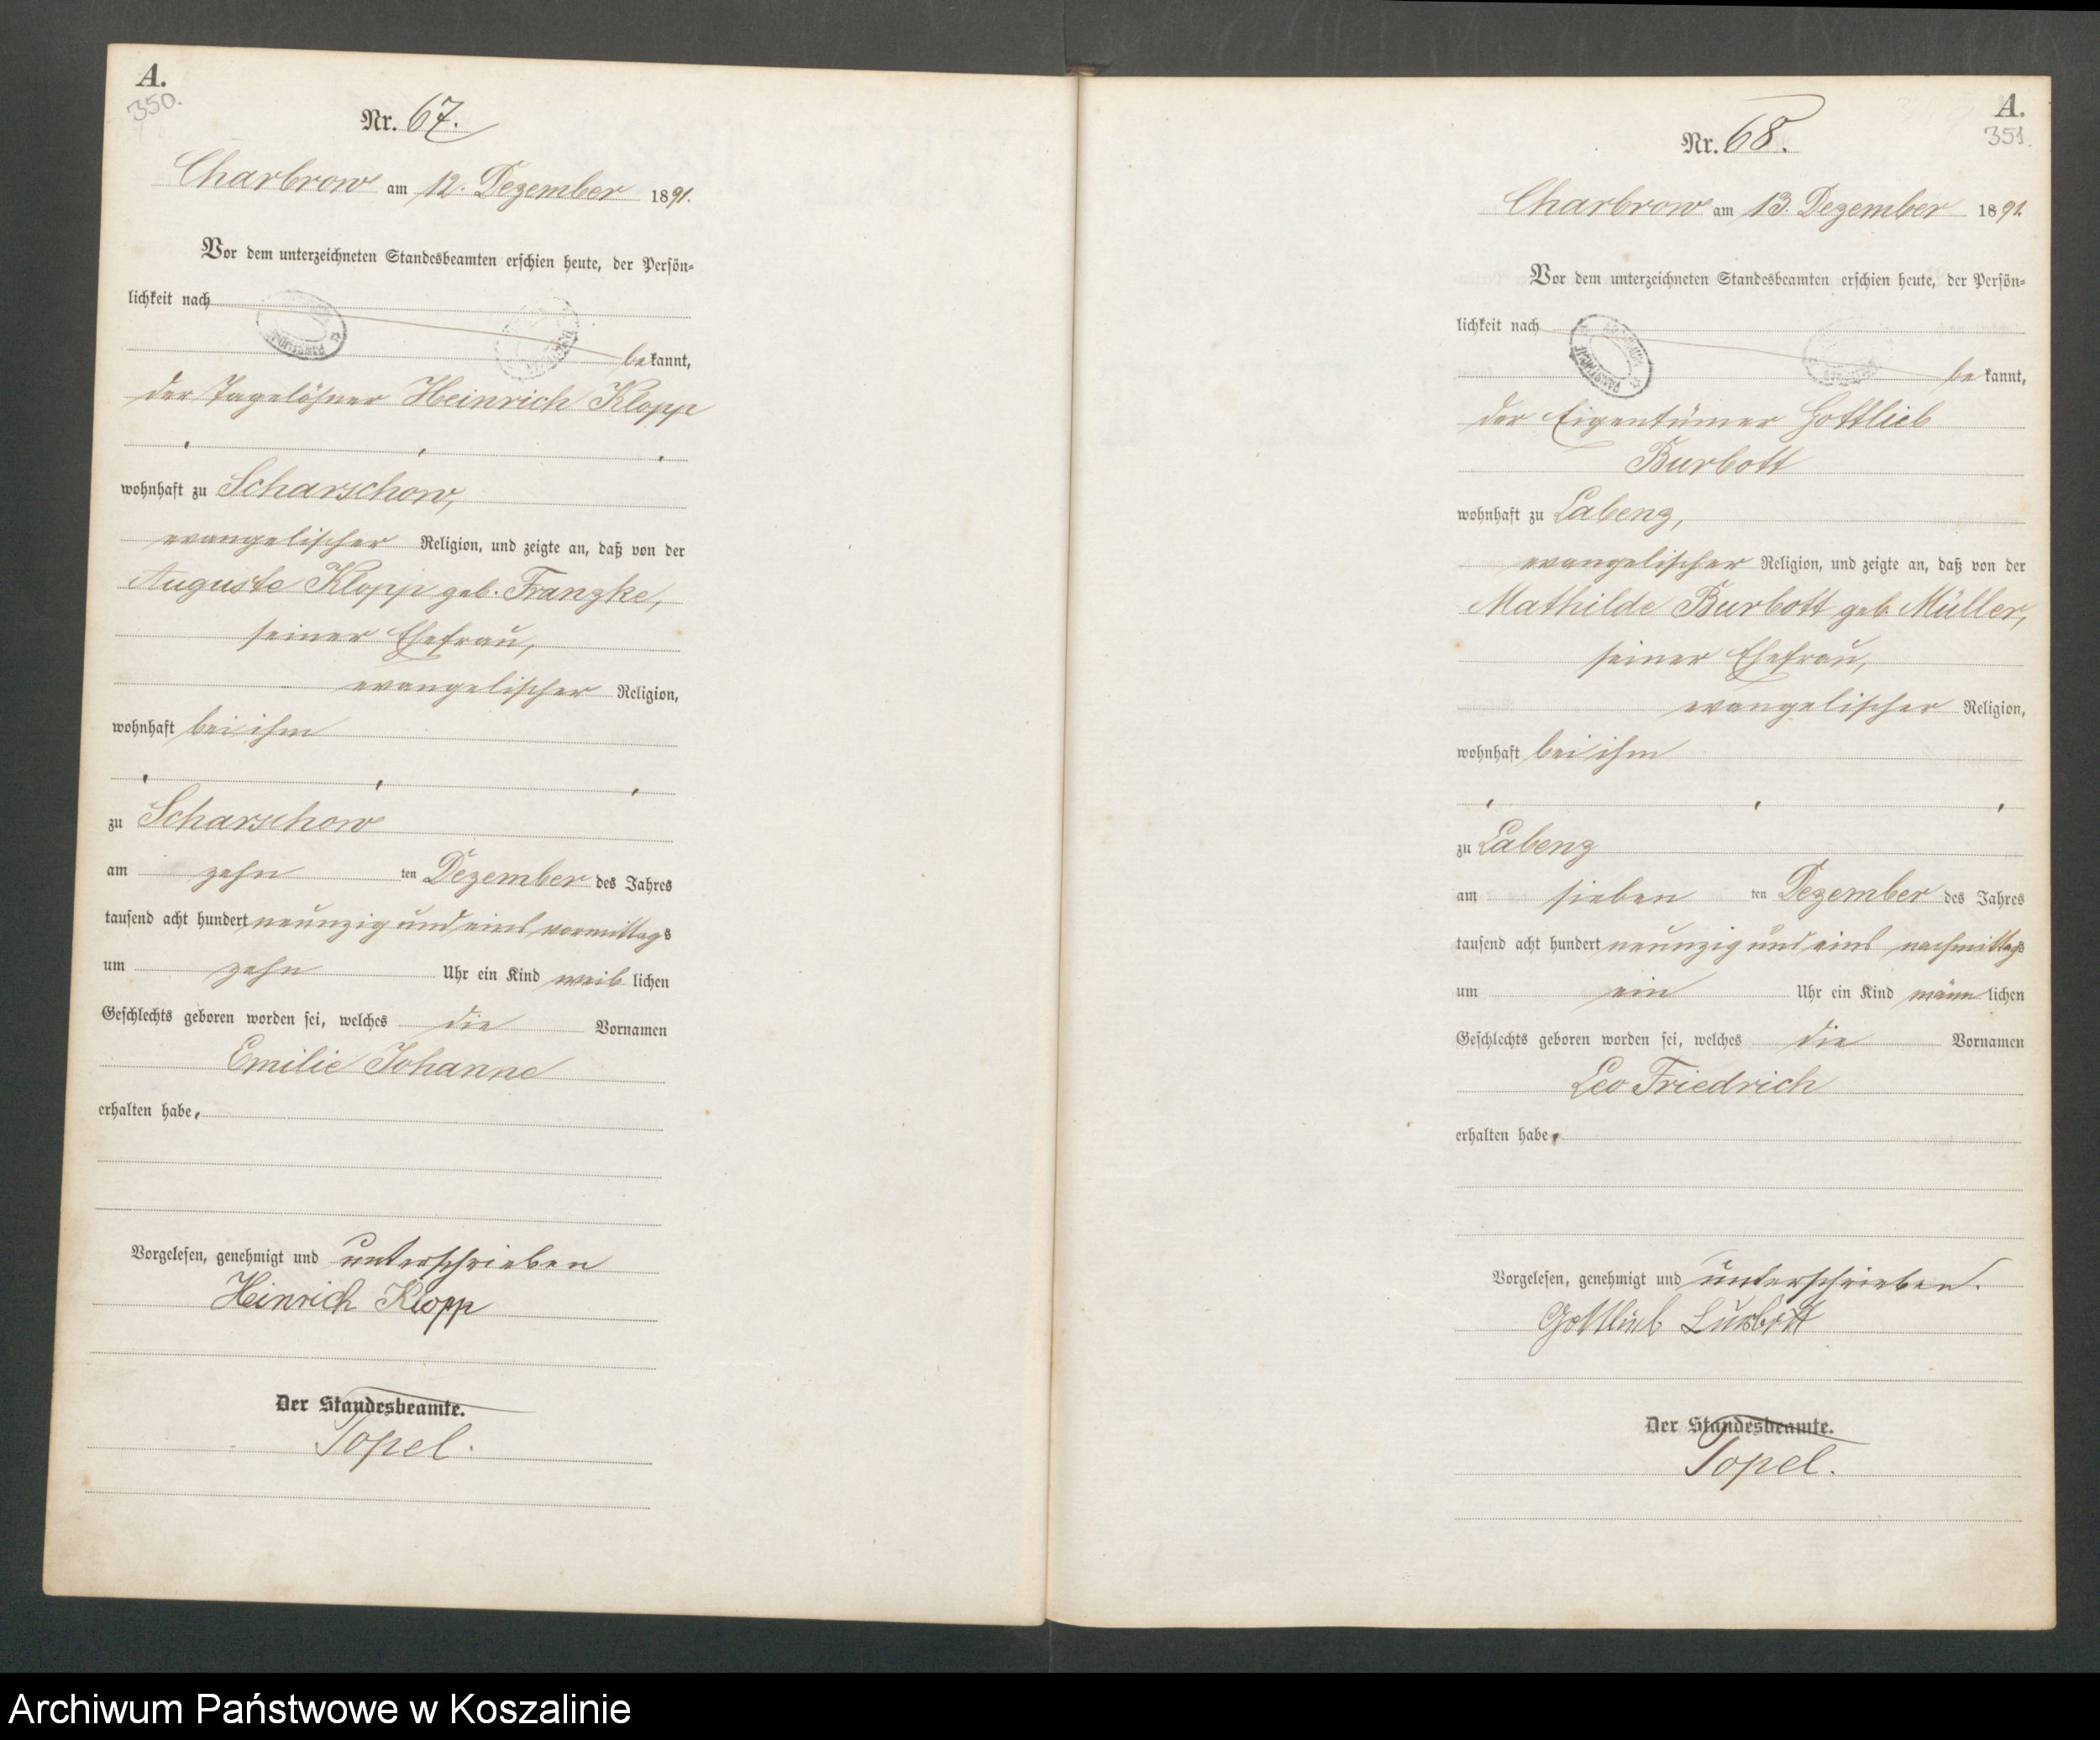 A.
350.
Nr. 67.
Charbrow am 12. Dezember 1891.
Vor dem unterzeichneten Standesbeamten erschien heute, der Persön-
lichkeit nach
bekannt,
der Tagelöhner Heinrich Klopp
wohnhaft zu Scharschow,
evangelischer Religion, und zeigte an, daß von der
Auguste Klopp geb. Franzke,
seiner Ehefrau,
evangelischer Religion,
wohnhaft bei ihm
zu Scharschow
am zehn ten Dezember des Jahres
tausend acht hundert neunzig und eins vormittags
um zehn Uhr ein Kind weiblichen
Geschlechts geboren worden sei, welches die Vornamen
Emilie Johanne
erhalten habe,
Vorgelesen, genehmigt und unterschrieben
Heinrich Klopp
Der Standesbeamte.
Topel.
A.
351.
Nr. 68.
Charbrow am 13. Dezember 1891.
Vor dem unterzeichneten Standesbeamten erschien heute, der Persön-
lichkeit nach
bekannt,
der Eigentümer Gottlieb
Burbott
wohnhaft zu Labenz,
evangelischer Religion, und zeigte an, daß von der
Mathilde Burbott geb. Müller,
seiner Ehefrau,
evangelischer Religion,
wohnhaft bei ihm
zu Labenz
am sieben ten Dezember des Jahres
tausend acht hundert neunzig und eins nachmittags
um ein Uhr ein Kind männlichen
Geschlechts geboren worden sei, welches die Vornamen
Leo Friedrich
erhalten habe,
Vorgelesen, genehmigt und unterschrieben.
Gottlieb
Der Standesbeamte.
Topel.
Archiwum Państwowe w Koszalinie